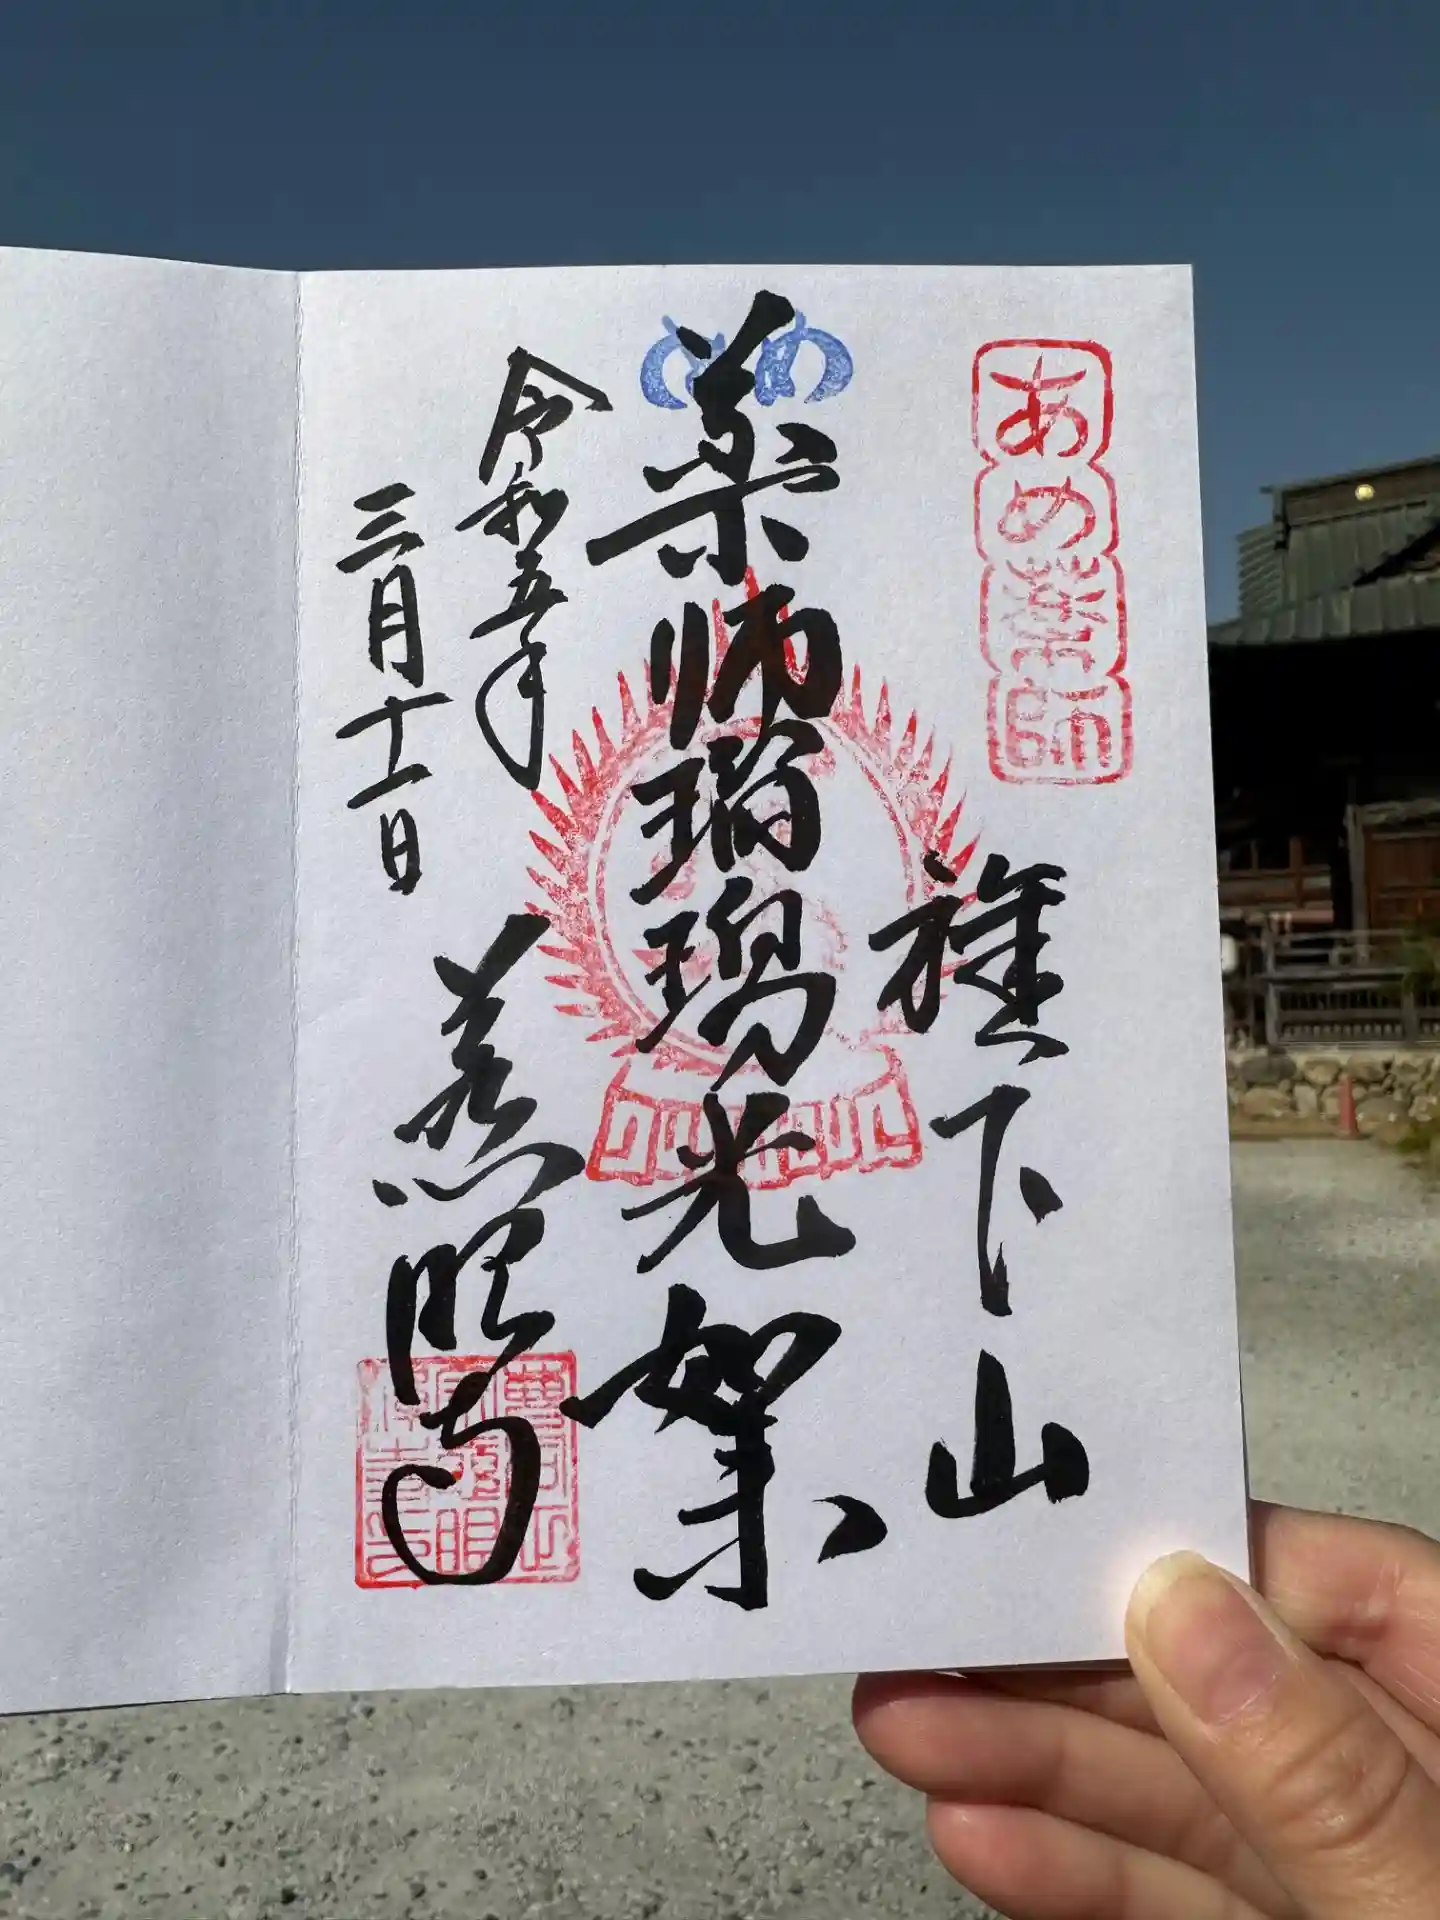 あめ薬師
旗下山
薬師瑠璃光如来
令和五年
三月十一日
慈眼寺